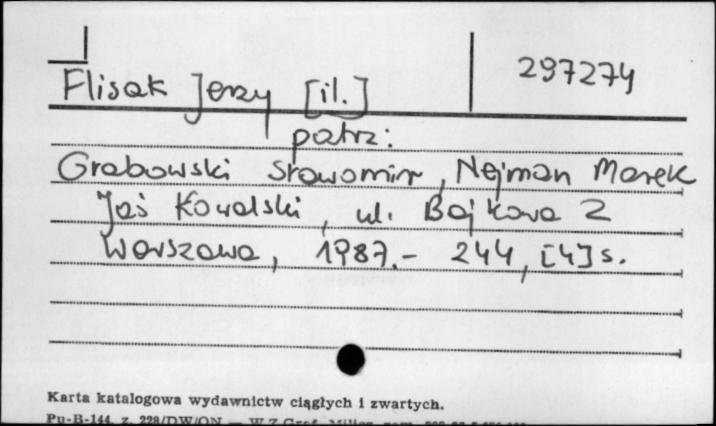 Flisak Jerzy [il.]
297274
patrz:
Grabowski Sławomir, Nejman Marek
Jaś Kowalski, ul. Bajkowa 2
Warszawa, 1987.- 244, [4] s.
Karta katalogowa wydawnictw ciągłych i zwartych.
Pu-B-144, z. 228/DW/ON — W.Z.Graf.